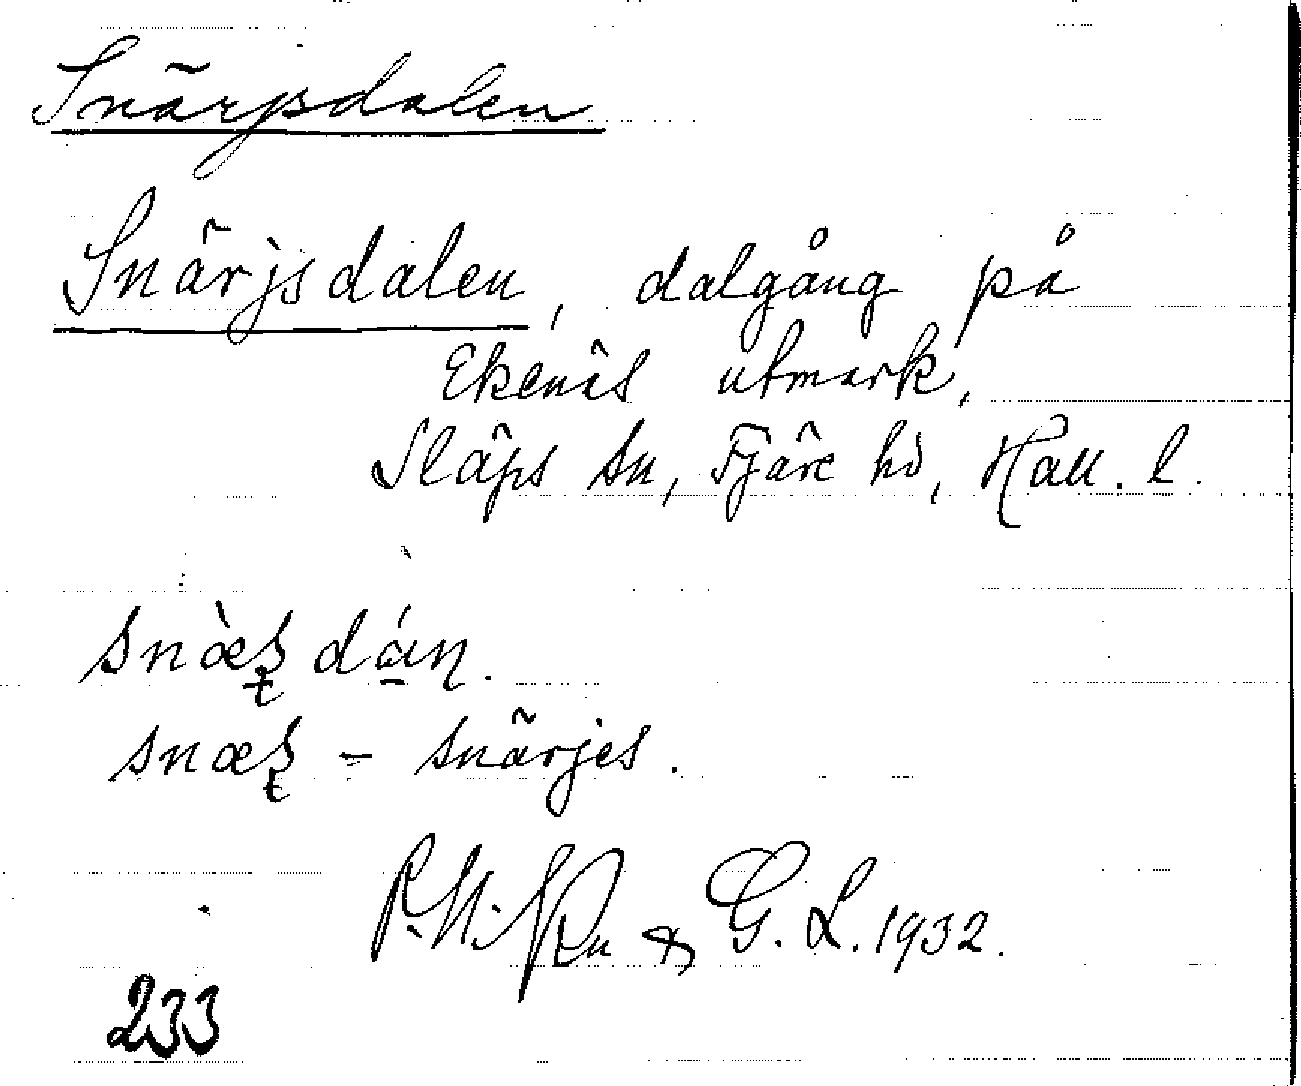 Snärjsdalen
Snärjsdalen, dalgång på
Ekenäs utmark,
Släps sn, Fjäre hd, Hall. l.
snæ̀ʂ dán.
snæʂ - snärjes.
& G. L. 1932.
233